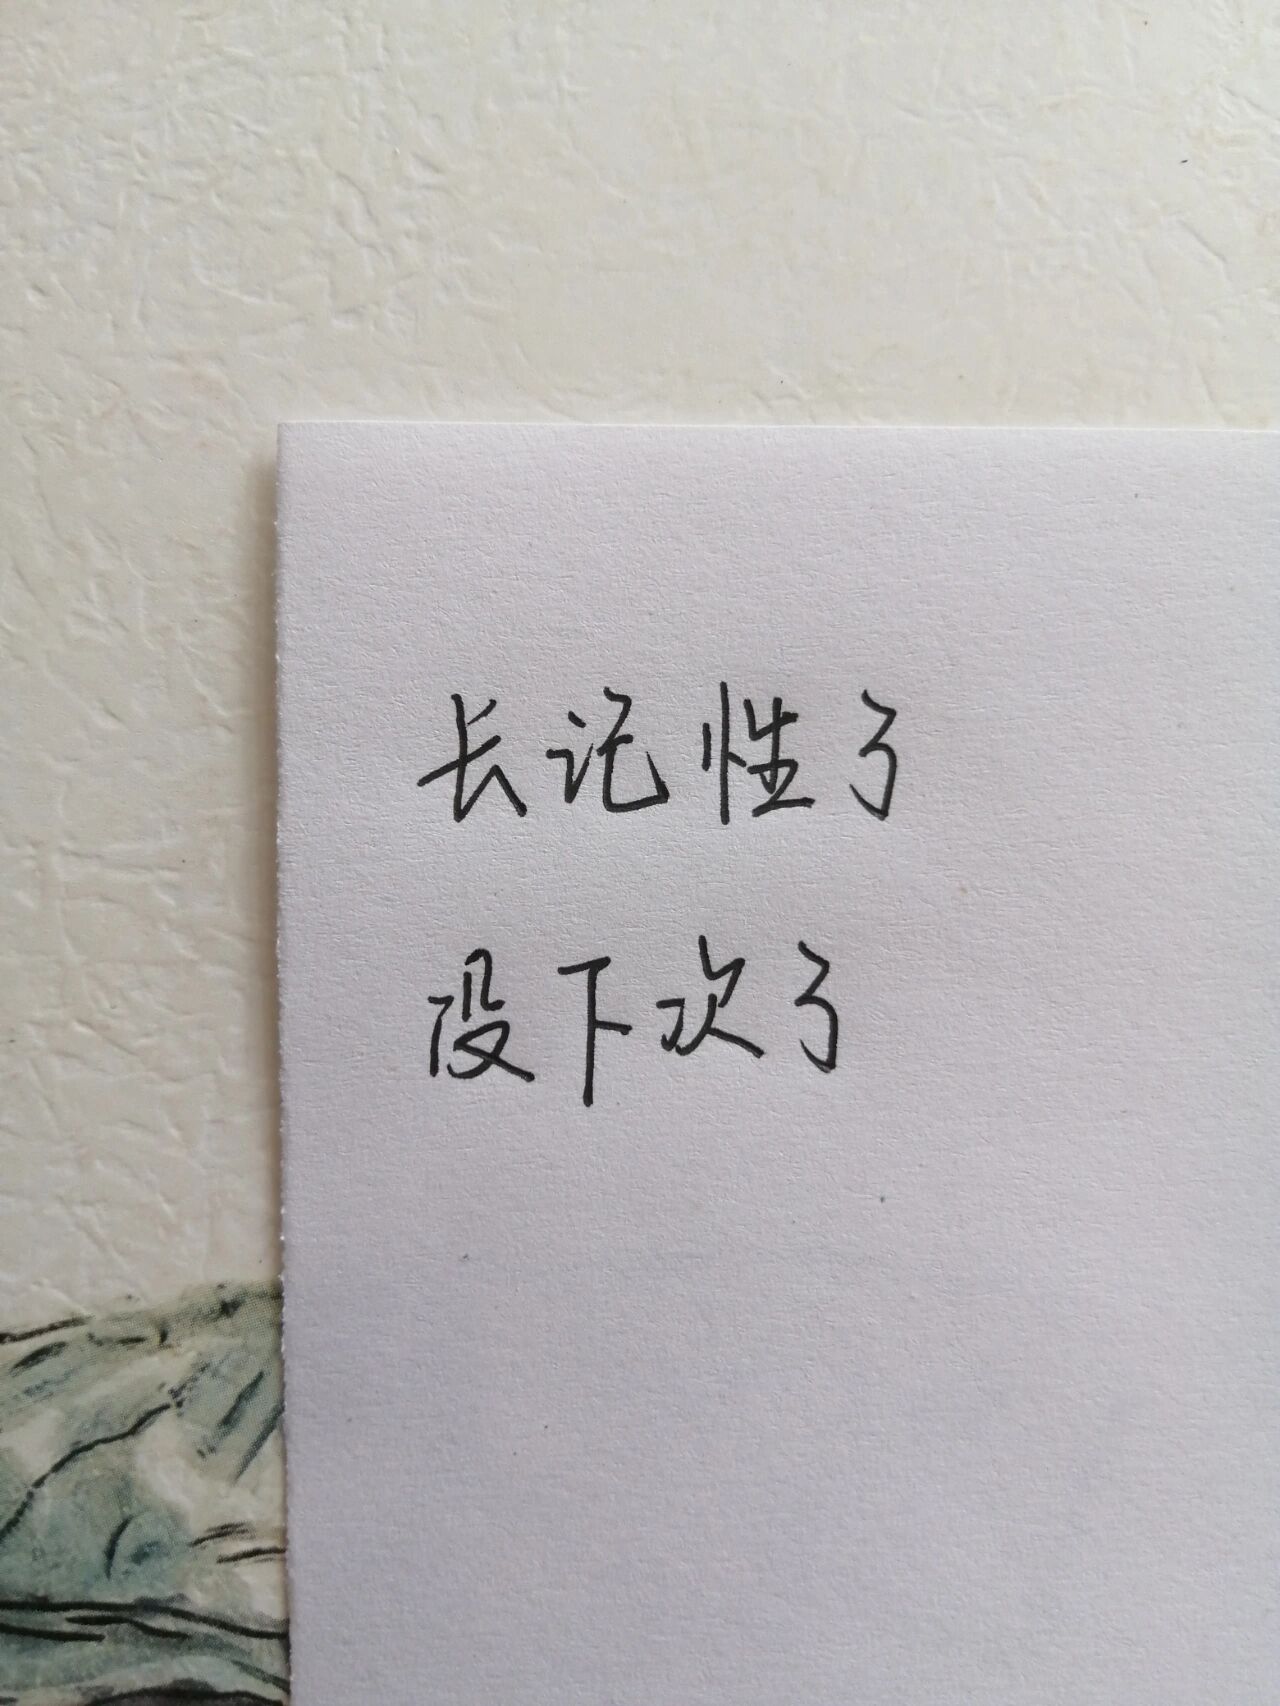 长记性了
没下次了